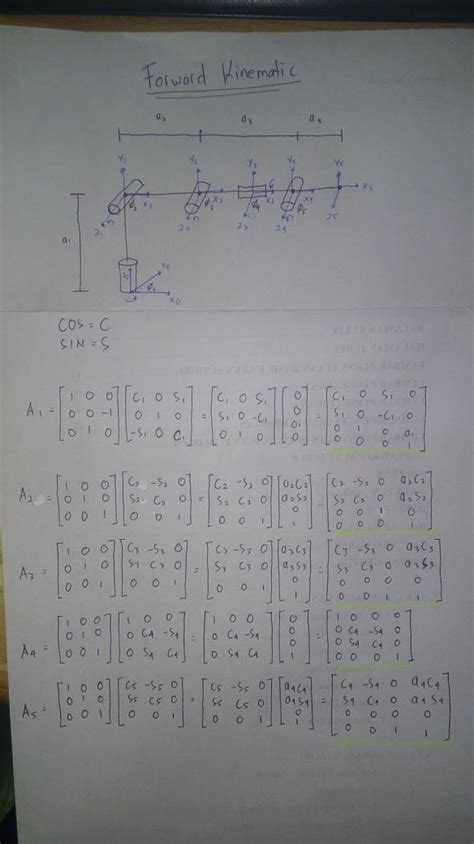 Forward Kinematic
a₂ a₃ a₄
Y₁ Y₂ Y₃ Y₄ Y₅
X₁ X₂ X₃ X₅
Z₂ Z₃ Z₄ Z₅
a₁
Y₀
X₀
COS = C
SIN = S
A₁ = [1 0 0; 0 0 -1; 0 1 0] [C₁ 0 S₁; 0 1 0; -S₁ 0 C₁] = [C₁ 0 S₁; S₁ 0 -C₁; 0 1 0] [0; 0; a₁] = [C₁ 0 S₁ 0; S₁ 0 -C₁ 0; 0 1 0 a₁; 0 0 0 1]
A₂ = [1 0 0; 0 1 0; 0 0 1] [C₂ -S₂ 0; S₂ C₂ 0; 0 0 1] = [C₂ -S₂ 0; S₂ C₂ 0; 0 0 1] [a₂C₂; a₂S₂; 1] = [C₂ -S₂ 0 a₂C₂; S₂ C₂ 0 a₂S₂; 0 0 1 0; 0 0 0 1]
A₃ = [1 0 0; 0 1 0; 0 0 1] [C₃ -S₃ 0; S₃ C₃ 0; 0 0 1] = [C₃ -S₃ 0; S₃ C₃ 0; 0 0 1] [a₃C₃; a₃S₃; 1] = [C₃ -S₃ 0 a₃C₃; S₃ C₃ 0 a₃S₃; 0 0 0 0; 0 0 1 1]
A₄ = [1 0 0; 0 1 0; 0 0 1] [1 0 0; 0 C₄ -S₄; 0 S₄ C₄] = [1 0 0; 0 C₄ -S₄; 0 S₄ C₄] [0; 0; 0; 1] = [1 0 0 0; 0 C₄ -S₄ 0; 0 S₄ C₄ 0; 0 0 0 1]
A₅ = [1 0 0; 0 1 0; 0 0 1] [C₅ -S₅ 0; S₅ C₅ 0; 0 0 1] = [C₅ -S₅ 0; S₅ C₅ 0; 0 0 1] [a₄C₄; a₄S₄; 0; 1] = [C₄ -S₄ 0 a₄C₄; S₄ C₄ 0 a₄S₄; 0 0 0 0; 0 0 1 1]